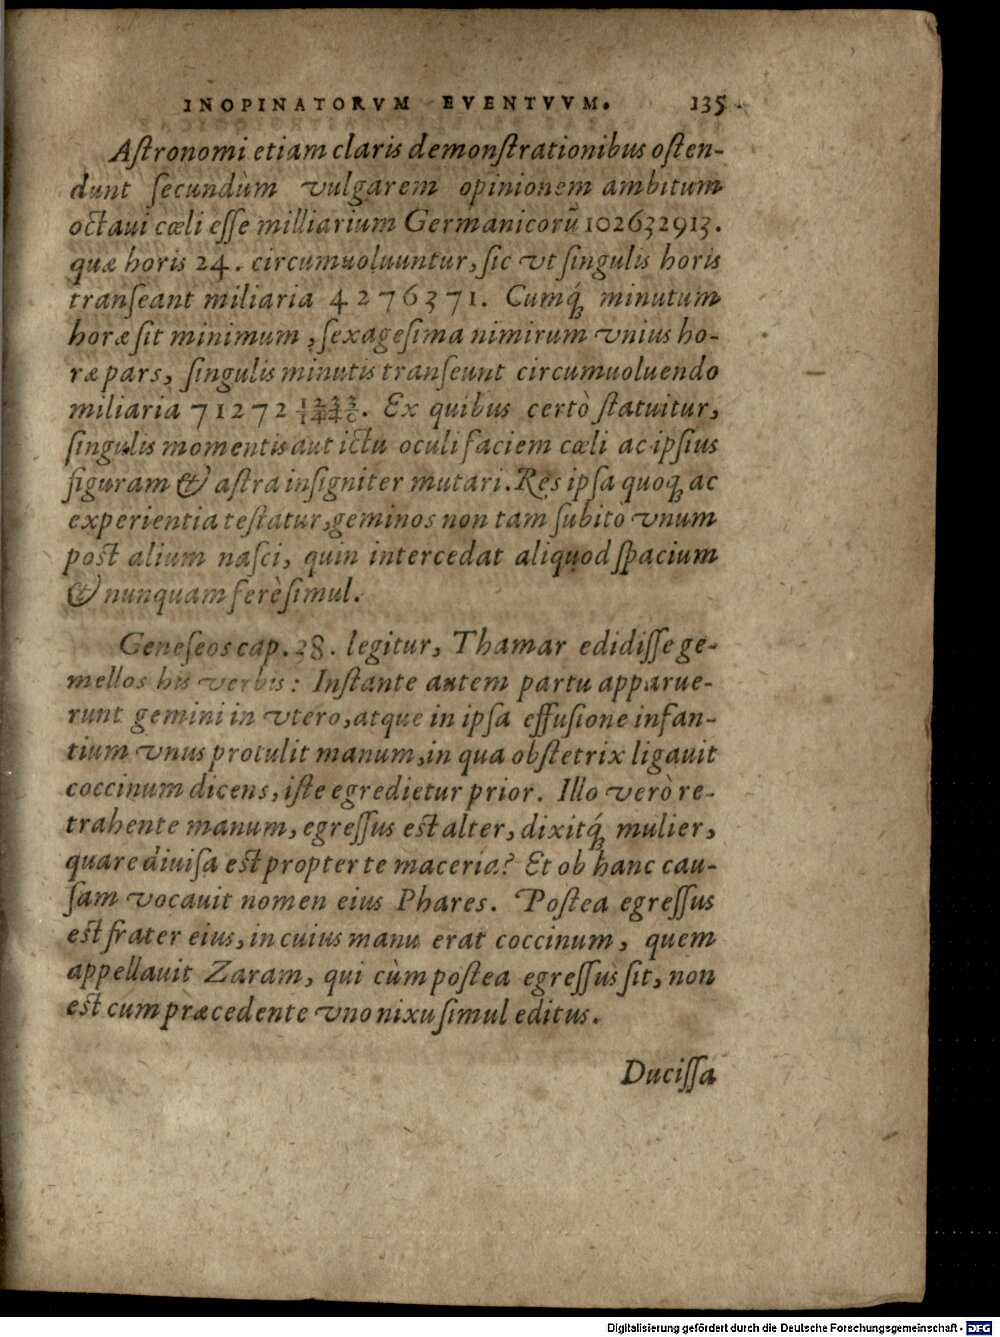 INOPINATORVM EVENTVVM. 135
Aſtronomi etiam claris demonſtrationibus oſten-
dunt ſecundùm vulgarem opinionem ambitum
octaui cœli eſſe milliarium Germanicorũ 102632913.
quæ horis 24. circumuoluuntur, ſic vt ſingulis horis
tranſeant miliaria 4276371. Cumq́; minutum
horæ ſit minimum, ſexageſima nimirum vnius ho-
ræ pars, ſingulis minutis tranſeunt circumuoluendo
miliaria 71272 1233/1440. Ex quibus certò ſtatuitur,
ſingulis momentis aut ictu oculi faciem cœli ac ipſius
figuram & aſtra inſigniter mutari. Res ipſa quoq; ac
experientia teſtatur, geminos non tam ſubito vnum
poſt alium naſci, quin intercedat aliquod ſpacium
& nunquam ferè ſimul.
Geneſeos cap. 38. legitur, Thamar edidiſſe ge-
mellos his verbis: Inſtante autem partu apparue-
runt gemini in vtero, atque in ipſa effuſione infan-
tium vnus protulit manum, in qua obſtetrix ligauit
coccinum dicens, iſte egredietur prior. Illo verò re-
trahente manum, egreſſus eſt alter, dixitq́; mulier,
quare diuiſa eſt propter te maceria? Et ob hanc cau-
ſam vocauit nomen eius Phares. Poſtea egreſſus
eſt frater eius, in cuius manu erat coccinum, quem
appellauit Zaram, qui cùm poſtea egreſſus ſit, non
eſt cum præcedente vno nixu ſimul editus.
Duciſſa
Digitalisierung gefördert durch die Deutsche Forschungsgemeinschaft - DFG